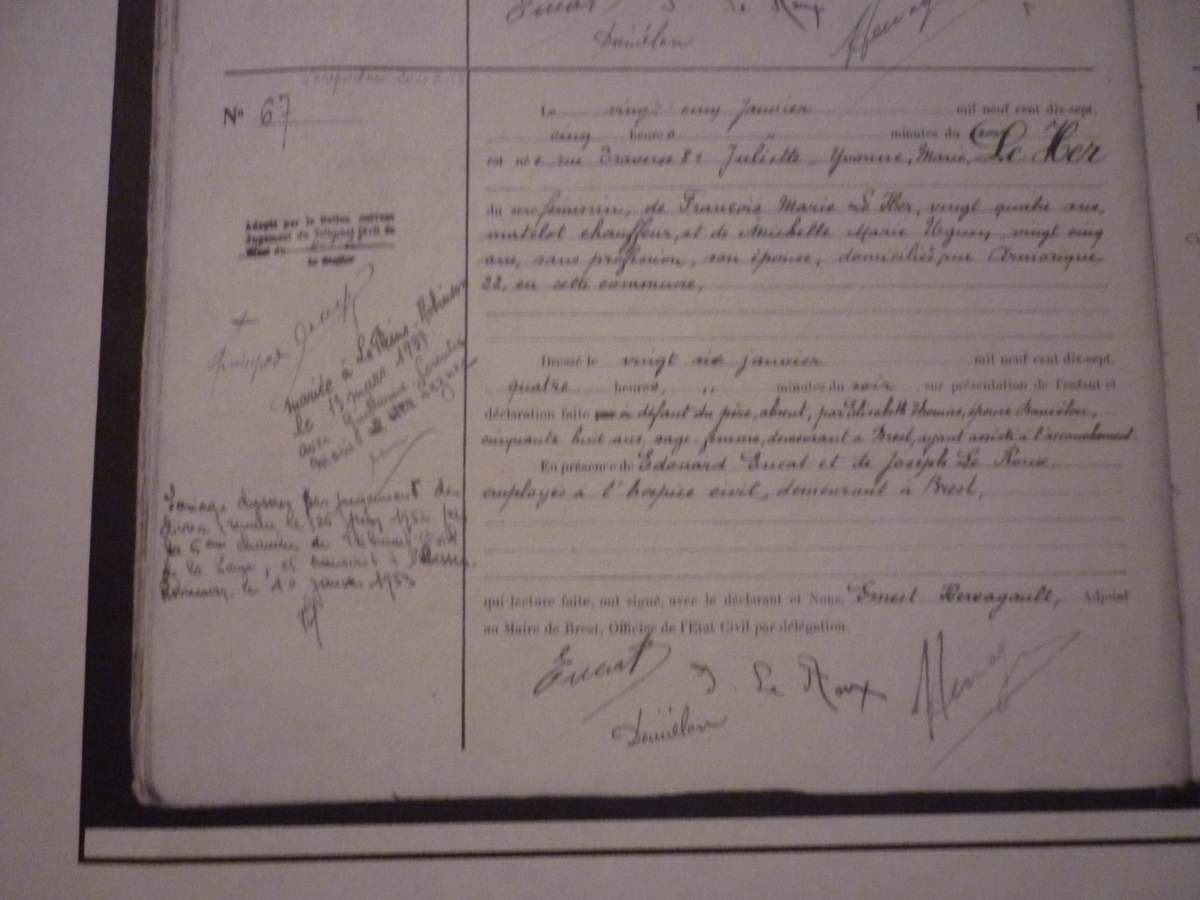 J. Le Roux
Daniélou
Nº 67
Le vingt cinq Janvier mil neuf cent dix-sept,
cinq heures " minutes du
est née rue Traverse 81 Juliette, Yvonne, Marie, Le Her
du sexe féminin, de François Marie Le Her, vingt quatre ans,
matelot chauffeur, et de Michelle Marie Uguen, vingt cinq
ans, sans profession, son épouse, domiciliés rue Armorique
22, en cette commune.
Dressé le vingt six janvier mil neuf cent dix-sept,
quatre heures, " minutes du soir, sur présentation de l'enfant et
déclaration faite à défaut du père, absent, par Elisabeth Thomas, épouse Daniélou,
cinquante huit ans, sage femme, demeurant à Brest, ayant assisté à l'accouchement
En présence de Edouard Eucat et de Joseph Le Roux,
employés à l'hospice civil, demeurant à Brest,
qui lecture faite, ont signé, avec le déclarant et Nous, Ernest Hervagault, Adjoint
au Maire de Brest, Officier de l'Etat Civil par délégation.
Eucat J. Le Roux
Daniélou
Adopté par la Nation suivant
Jugement du Tribunal civil de
Brest du
Le Greffier
mariée à Le Plessis-Robinson
le 13 mars 1937
avec Guillaume
Marie
Mariage dissous par jugement de
divorce rendu le
la 5ème chambre du Tribunal Civil
de la Seine, et transcrit à
Robinson, le 10 janvier 1953